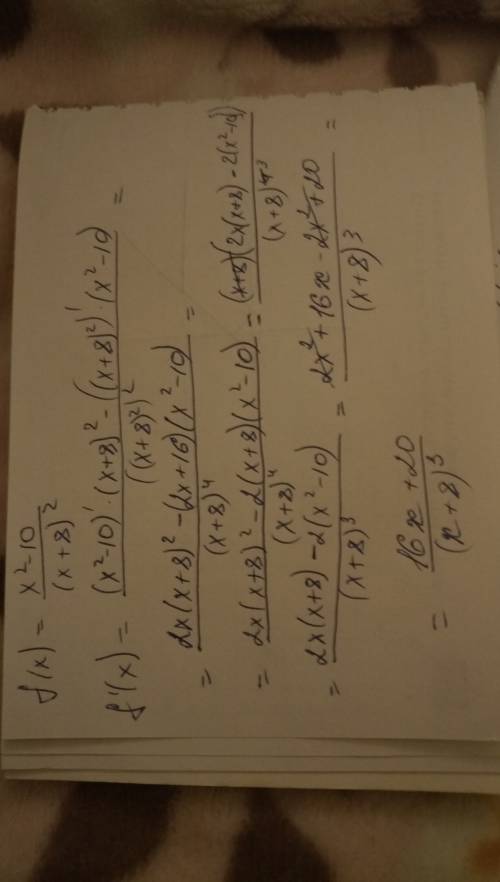 f(x) = \frac{x^2-10}{(x+8)^2}
f'(x) = \frac{(x^2-10)'·(x+8)^2-((x+8)^2)'·(x^2-10)}{((x+8)^2)^2} =
= \frac{2x(x+8)^2-(2x+16)(x^2-10)}{(x+8)^4} =
= \frac{2x(x+8)^2-2(x+8)(x^2-10)}{(x+8)^4} = \frac{(x+8)(2x(x+8)-2(x^2-10))}{(x+8)^{4 3}}
= \frac{2x(x+8)-2(x^2-10)}{(x+8)^3} = \frac{2x^2+16x-2x^2+20}{(x+8)^3} =
= \frac{16x+20}{(x+8)^3}